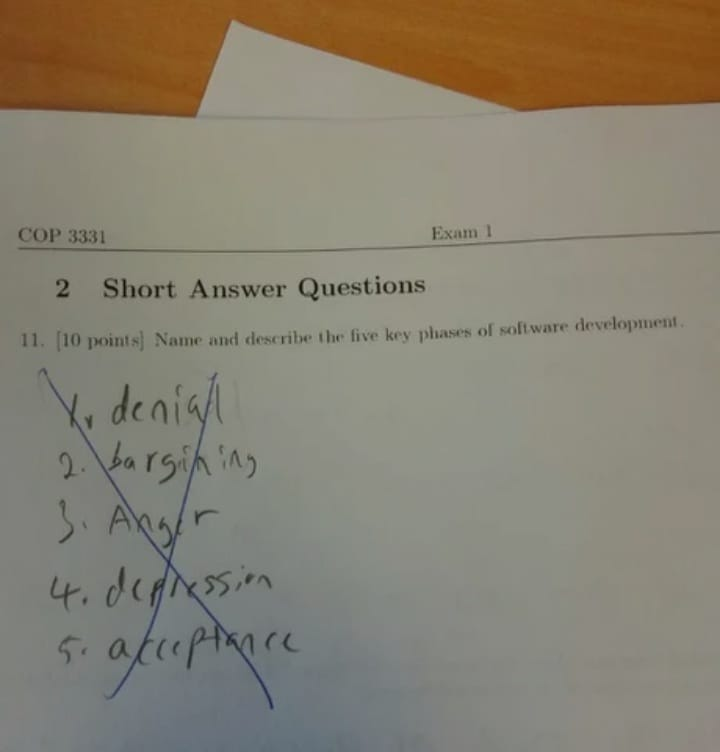 COP 3331
Exam 1
2 Short Answer Questions
11. [10 points] Name and describe the five key phases of software development.
1. denial
2. bargining
3. Anger
4. depression
5. acceptance